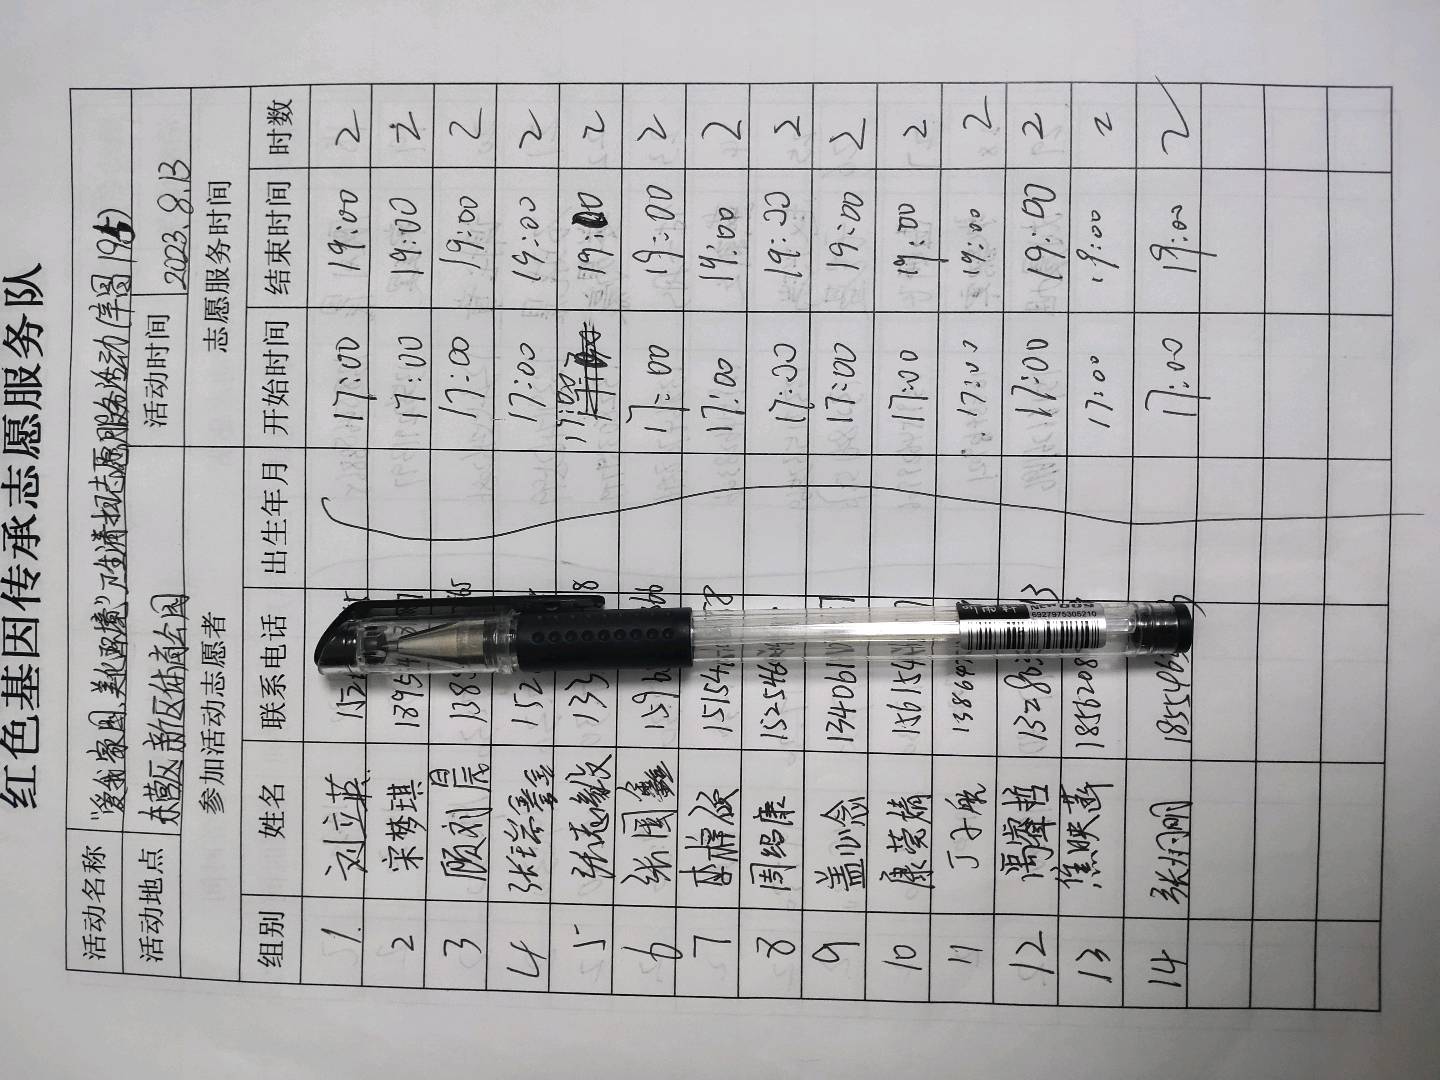 红色基因传承志愿服务队
活动名称 "爱我家园、美化环境"卫生清扫志愿服务活动
活动地点 东营区新区体育公园 活动时间 2023.8.13
参加活动志愿者 志愿服务时间
组别 姓名 联系电话 出生年月 开始时间 结束时间 时数
1. 刘立英 152 17:00 19:00 2
2 宋梦琪 1895 17:00 19:00 2
3 顾刘晨 138 17:00 19:00 2
4 152 17:00 19:00 2
5 133 17:00 19:00 2
6 159 17:00 19:00 2
7 15154 17:00 19:00 2
8 周绍康 152546 17:00 19:00 2
9 盖心念 134061 17:00 19:00 2
10 康荣婧 156154 17:00 19:00 2
11 丁子航 13864 17:00 19:00 2
12 禹睿哲 1328 17:00 19:00 2
13 焦映燕 1856208 17:00 19:00 2
14 张丽丽 185546 17:00 19:00 2
NEW GUN
6927975305210